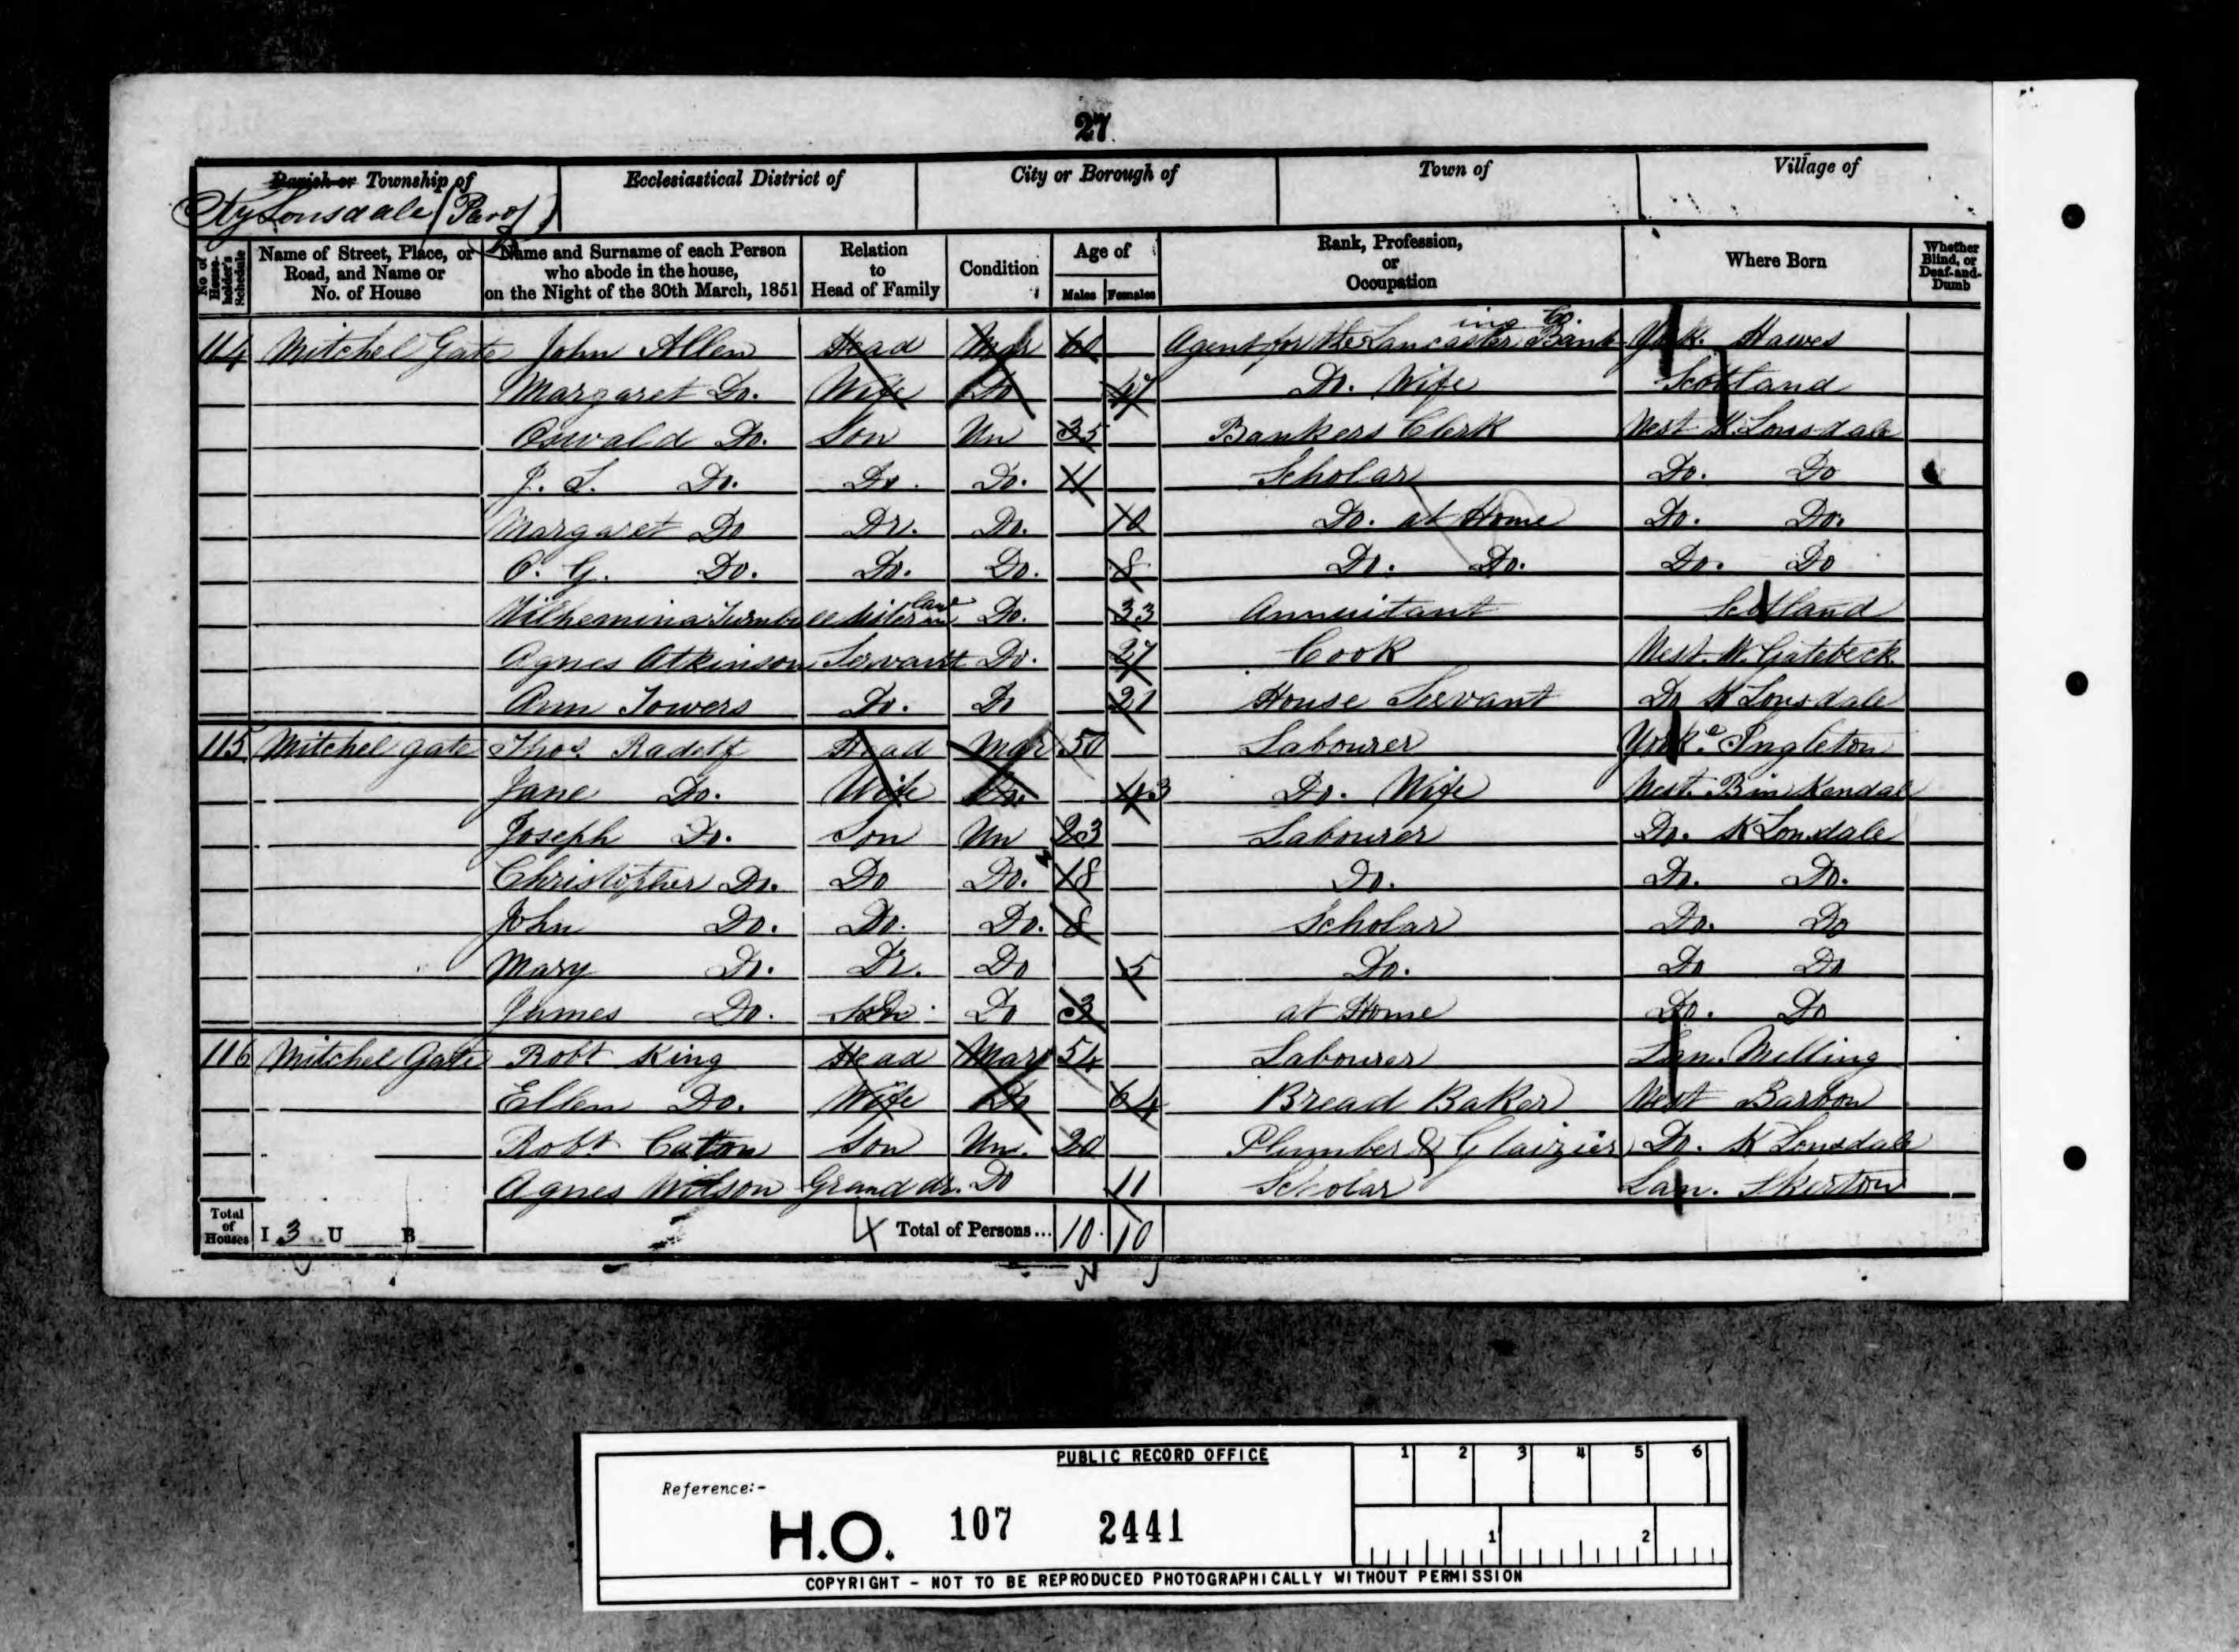 27
Parish or Township of Ecclesiastical District of City or Borough of Town of Village of
Ky Lonsdale (Part of)
No. of House-holder's Schedule Name of Street, Place, or Road, and Name or No. of House Name and Surname of each Person who abode in the house, on the Night of the 30th March, 1851 Relation to Head of Family Condition Age of Males Females Rank, Profession, or Occupation Where Born Whether Blind, or Deaf-and-Dumb
114 Mitchel Gate John Allen Head Mar Agent for the Lancaster Banking Co. York. Hawes
Margaret Do. Wife Do 47 Do. Wife Scotland
Oswald Do. Son Un 35 Bankers Clerk West K. Lonsdale
J. L. Do. Do. Do. 11 Scholar Do. Do
Margaret Do Dr. Do. 10 Do. at Home Do. Do.
O. G. Do. Do. Do. 8 Do. Do. Do. Do
Wilhemina Turnbull Sister in law Do. 33 Annuitant Scotland
Agnes Atkinson Servant Do. 27 Cook West. Gatebeck
Ann Towers Do. Do 21 House Servant Do K Lonsdale
115 Mitchel gate Thos. Head Mar 50 Labourer Yorke Ingleton
Jane Do. Wife Do. 43 Do. Wife West. Kendal
Joseph Do. Son Un 23 Labourer Do. K Lonsdale
Christopher Do. Do Do. 18 Do. Do. Do.
John Do. Do. Do. 8 Scholar Do. Do
Mary Do. Dr. Do 5 Do. Do Do
James Do. Do 3 at Home Do. Do
116 Mitchel Gate Robt King Head Mar 54 Labourer Lan. Melling
Ellen Do. Wife Do 64 Bread Baker West Barbon
Robt Caton Son Un. 20 Plumber & Glaizier Do. K Lonsdale
Agnes Wilson Grand dr. Do 11 Scholar Lan. Skerton
Total of Houses I 3 U B 4 Total of Persons... 10 10
PUBLIC RECORD OFFICE 1 2 3 4 5 6
Reference:-
H.O. 107 2441 1 2
COPYRIGHT - NOT TO BE REPRODUCED PHOTOGRAPHICALLY WITHOUT PERMISSION